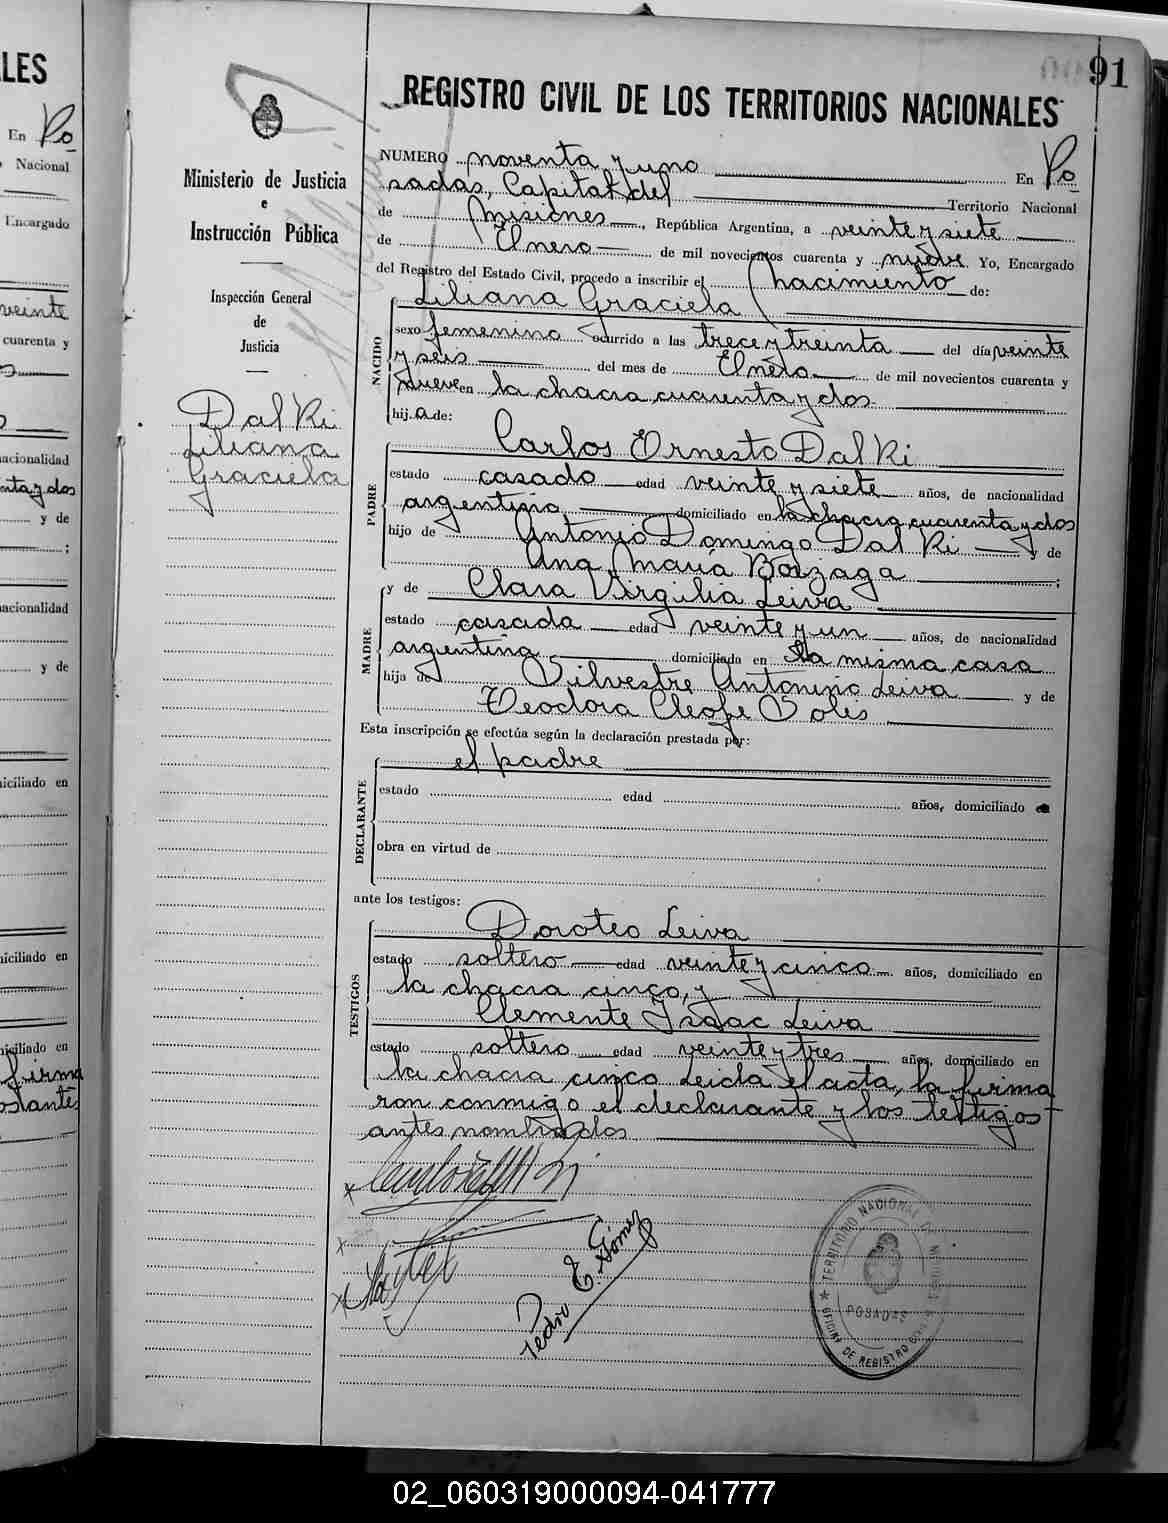 LES
En Po
Nacional
Encargado
veinte
cuarenta y
nacionalidad
y de
nacionalidad
y de
domiciliado en
domiciliado en
domiciliado en
firma
Ministerio de Justicia
e
Instrucción Pública
Inspección General
de
Justicia
Dal Ri
Liliana
Graciela
91
REGISTRO CIVIL DE LOS TERRITORIOS NACIONALES
NUMERO noventa y uno En Po
sadas, Capital del Territorio Nacional
de Misiones, República Argentina, a veinte y siete
de Enero de mil novecientos cuarenta y nueve Yo, Encargado
del Registro del Estado Civil, procedo a inscribir el nacimiento de:
Liliana Graciela
NACIDO
sexo femenino ocurrido a las trece y treinta del día veinte
y seis del mes de Enero de mil novecientos cuarenta y
nueve en la chacra cuarenta y dos
hija de:
Carlos Ernesto Dal Ri
PADRE
estado casado edad veinte y siete años, de nacionalidad
argentina domiciliado en la chacra cuarenta y dos
hijo de Antonio Domingo Dal Ri y de
Ana María Borzaga;
y de Clara Virgilia Leiva
MADRE
estado casada edad veinte y un años, de nacionalidad
argentina domiciliada en la misma casa
hija de Silvestre Antonino Leiva y de
Teodora Cleofe Solis
Esta inscripción se efectúa según la declaración prestada por:
el padre
DECLARANTE
estado edad años, domiciliado
obra en virtud de
ante los testigos:
Doroteo Leiva
TESTIGOS
estado soltero edad veinte y cinco años, domiciliado en
la chacra cinco, y
Clemente Isaac Leiva
estado soltero edad veinte y tres años, domiciliado en
la chacra cinco Leida el acta, la firma
ron conmigo el declarante y los testigos
antes nombrados
Pedro E. Gómez
TERRITORIO NACIONAL DE MISIONES
POSADAS
OFICINA DE REGISTRO CIVIL
02_060319000094-041777